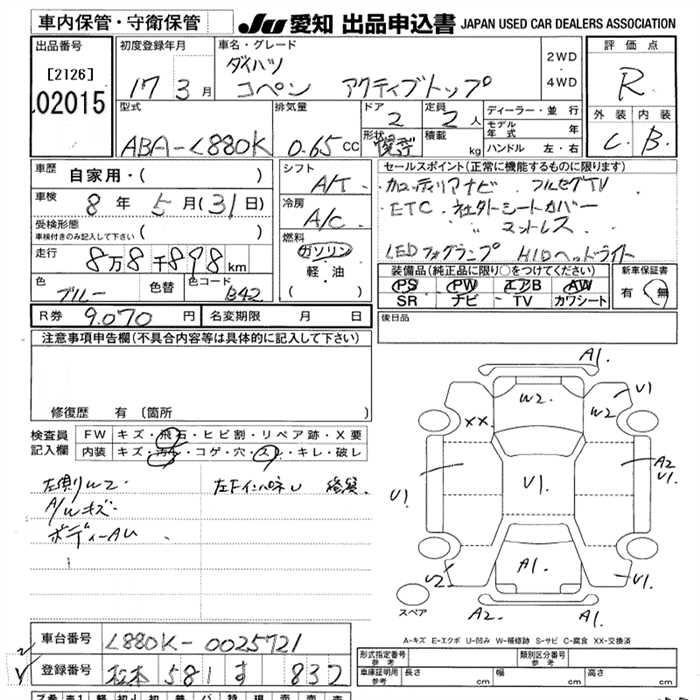 車内保管・守衛保管
JU 愛知 出品申込書 JAPAN USED CAR DEALERS ASSOCIATION
出品番号
[2126]
02015
初度登録年月
17 3月
車名・グレード
ダイハツ
コペン アクティブトップ
2WD
4WD
評価点
R
型式
ABA-L880K
排気量
0.65cc
ドア
2
形状
定員
2人
積載
kg
ディーラー・並行
モデル年式 年
ハンドル 左・右
外装 内装
C B
車歴
自家用・( )
車検
8年 5月(31日)
受検形態
車検付きのみ記入して下さい ( )
走行
8万8千898km
色
ブルー
色替
色コード
B42
シフト
A/T
冷房
A/C
燃料
ガソリン
軽・油
( )
セールスポイント(正常に機能するものに限ります)
・カロッツェリアナビ ・フルセグTV
・ETC ・社外シートカバー
・マットレス
LEDフォグランプ HIDヘッドライト
装備品(純正品に限り○をつけてください)
PS PW エアB AW
SR ナビ TV カワシート
新車保証書
有 無
R券 9.070円 名変期限 月 日
後日品
注意事項申告欄(不具合内容等は具体的に記入して下さい)
修復歴 有 (箇所 )
検査員記入欄
FW キズ・飛石・ヒビ割・リペア跡・X要
内装 キズ・汚れ・コゲ・穴・スレ・キレ・破レ
左側リW2
A/Wキズ
ボディーAU
左F インパネU
A1.
W2.
U1
W2
XX.
U1
U1.
A2
U1.
U2
A1.
U1
A2
A1.
スペア
A-キズ E-エクボ U-凹み W-補修跡 S-サビ C-腐食 XX-交換済
車台番号 L880K-0025721
登録番号 松本 581 す 832
形式指定番号
参考
類別区分番号
車庫証明用
参考
長さ cm 幅 cm 高さ cm